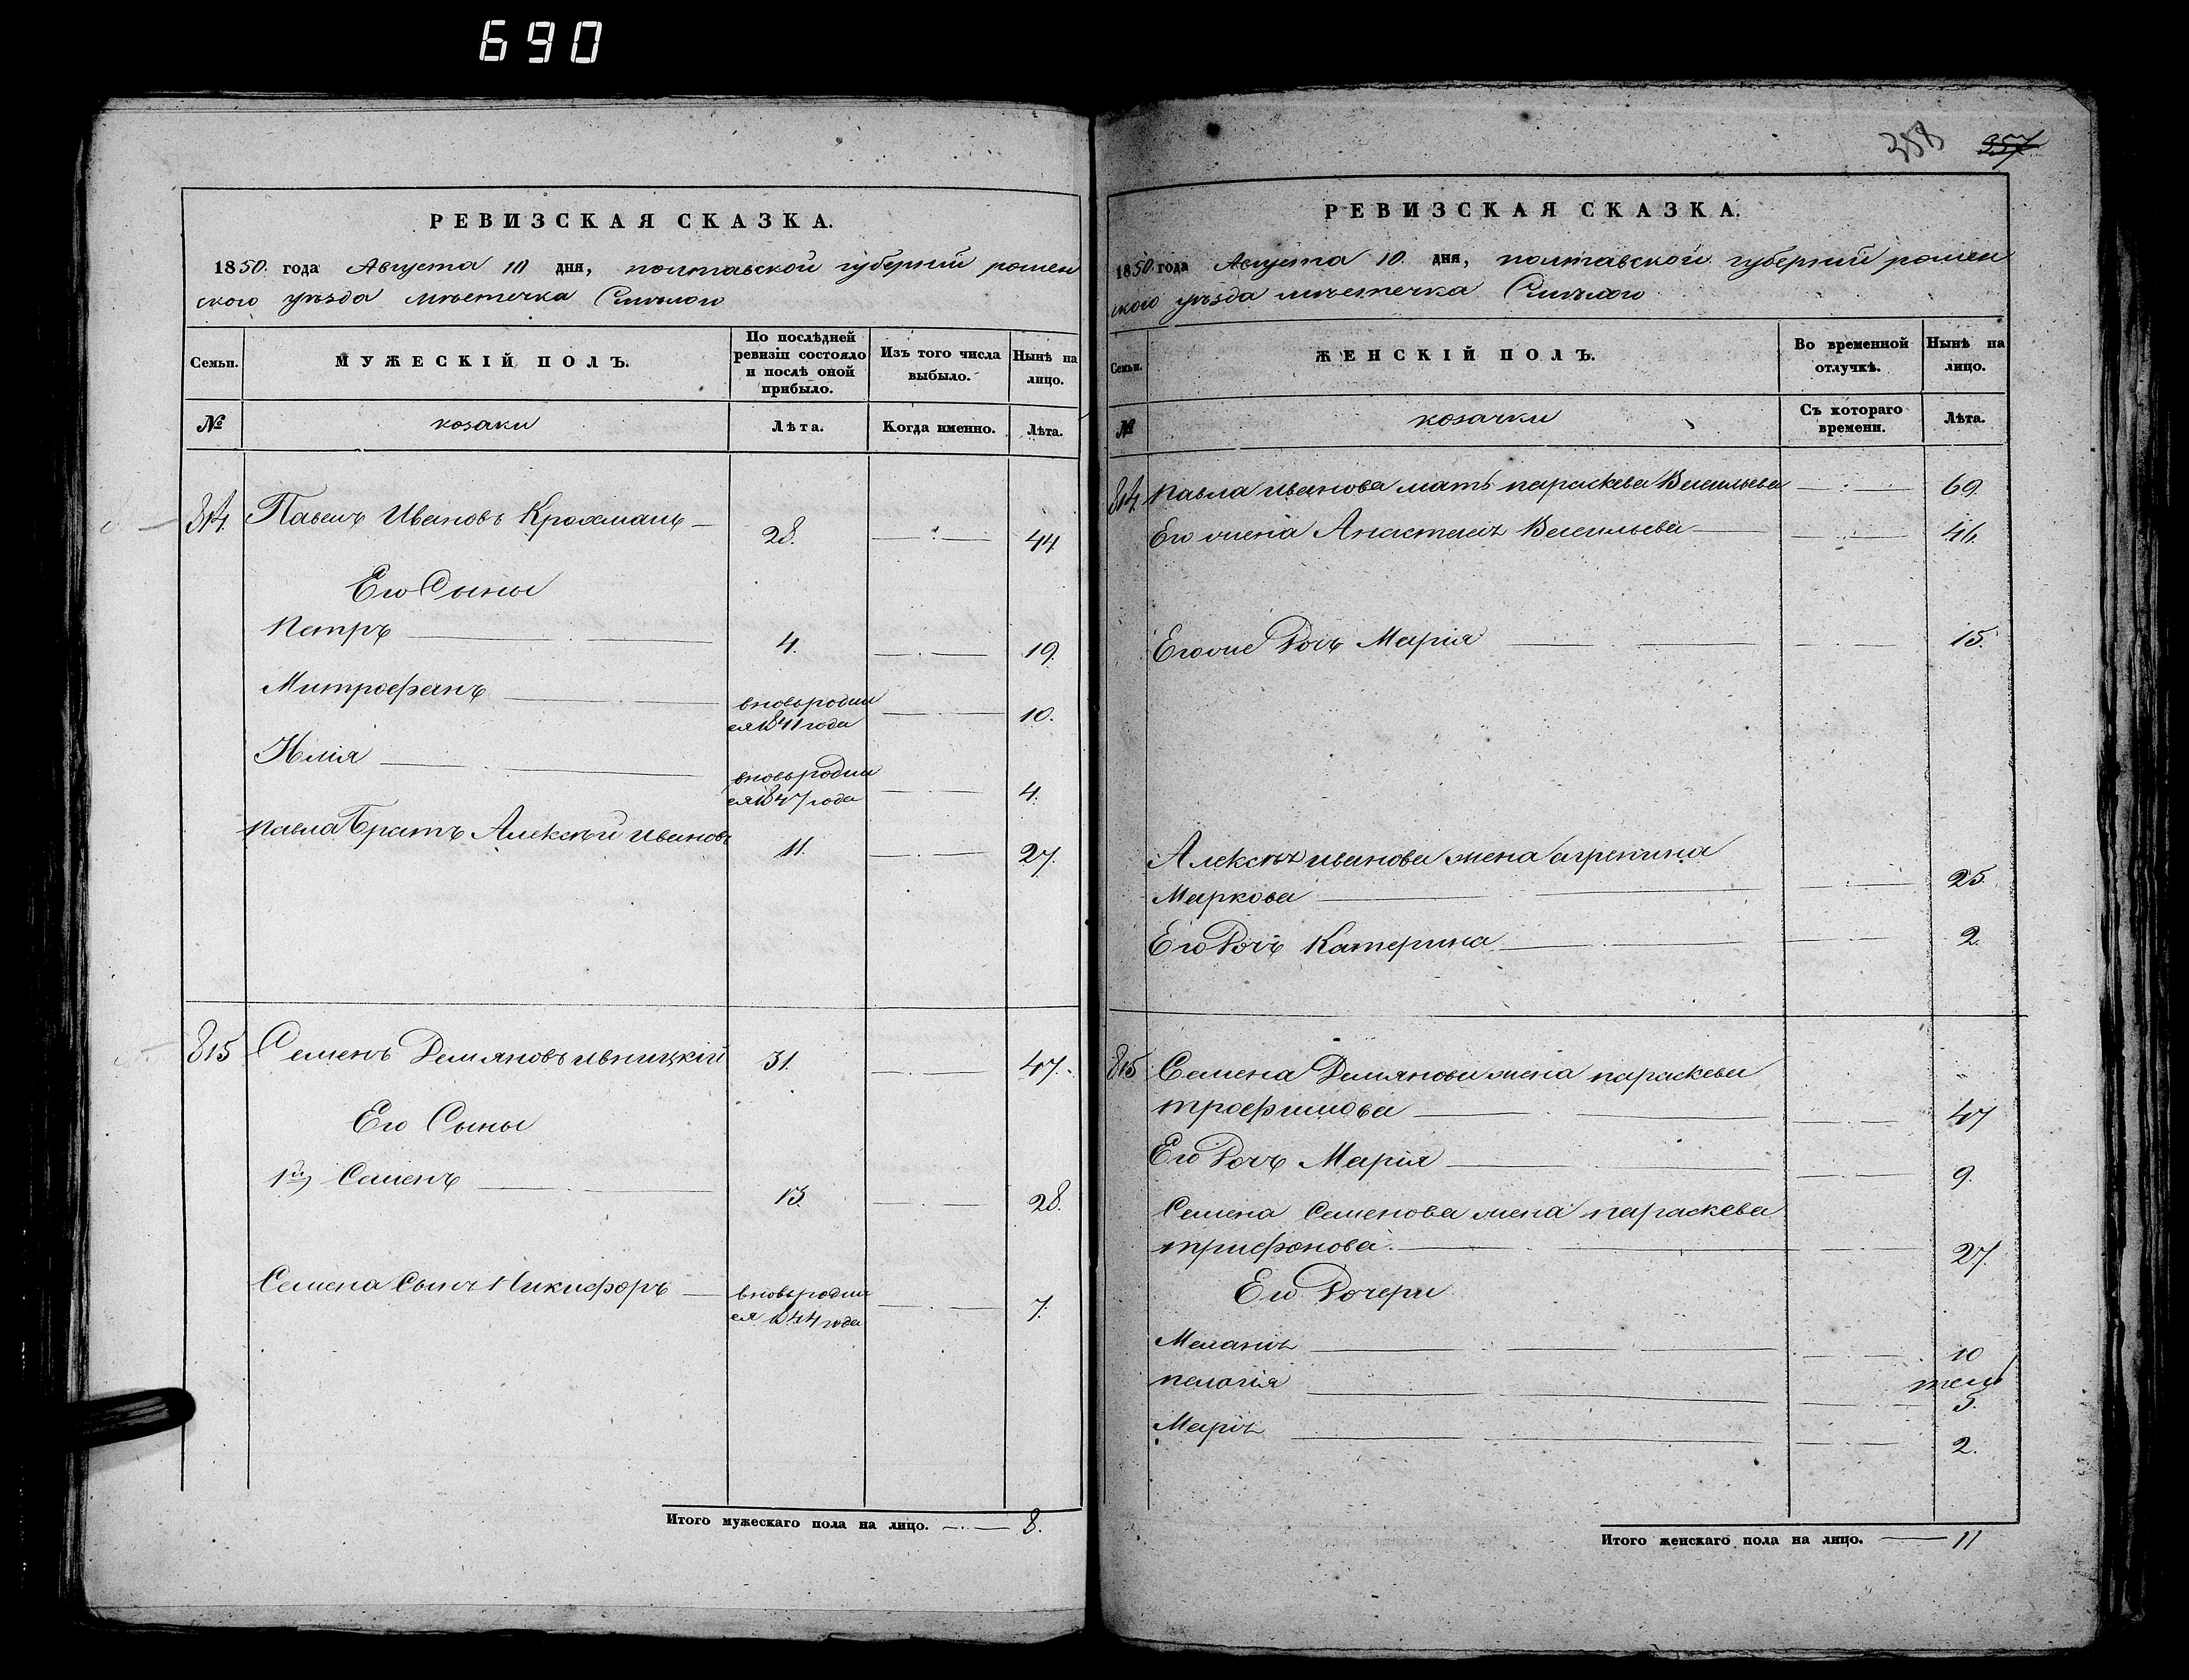 690
РЕВИЗСКАЯ СКАЗКА.
1850. года Августа 10 дня, полтавской губерній ромен
ского уѣзда мѣстечка Смѣлого
Семьи.
МУЖЕСКІЙ ПОЛЪ.
По послѣдней ревизіи состояло и послѣ оной прибыло.
Изъ того числа выбыло.
Нынѣ на лицо.
№ козаки Лѣта. Когда именно. Лѣта.
814 Павелъ Ивановъ Крохмаль 28. 44
Его Сыны
Петръ 4. 19.
Митрофанъ вновьродил
ся 1841 года 10.
Илія вновьродил
ся 1847 года 4.
павла Братъ Алексѣй ивановъ 11. 27.
815 Семенъ Демяновъ ивницкій 31. 47.
Его Сыны
1й) Семенъ 13. 28.
Семена Сынъ Никифоръ вновьродил
ся 1844 года 7.
Итого мужескаго пола на лицо. 8.
358 357
РЕВИЗСКАЯ СКАЗКА.
1850. года Августа 10. дня, полтавской губерній ромен
ского уѣзда мѣстечка Смѣлого
Семьи.
ЖЕНСКІЙ ПОЛЪ.
Во временной отлучкѣ.
Нынѣ на лицо.
№ козачки Съ котораго времени. Лѣта.
814 павла иванова мать параскева Васильева 69.
Его жена Анастасія Васильева 46.
Егоже Дочь Марія 15.
Алексѣя иванова жена агрепина
Маркова 25.
Его Дочь Катерина 2.
815 Семена Демянова жена параскева
трофимова 47
Его Дочь Марія 9.
Семена Семенова жена параскева
трифонова 27.
Его Дочери
Меланія 10
пелагія 5.
Марія 2.
Итого женскаго пола на лицо. 11